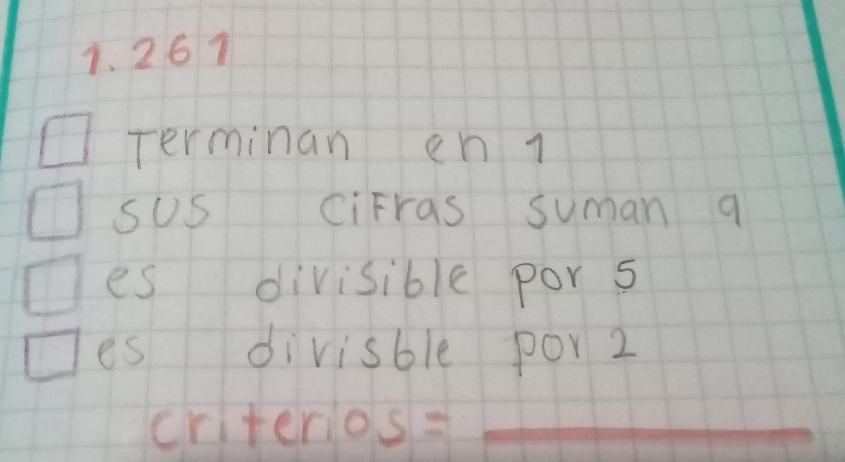 1.261
Terminan en 1
sus cifras suman 9
es divisible por 5
es divisble por 2
criterios=